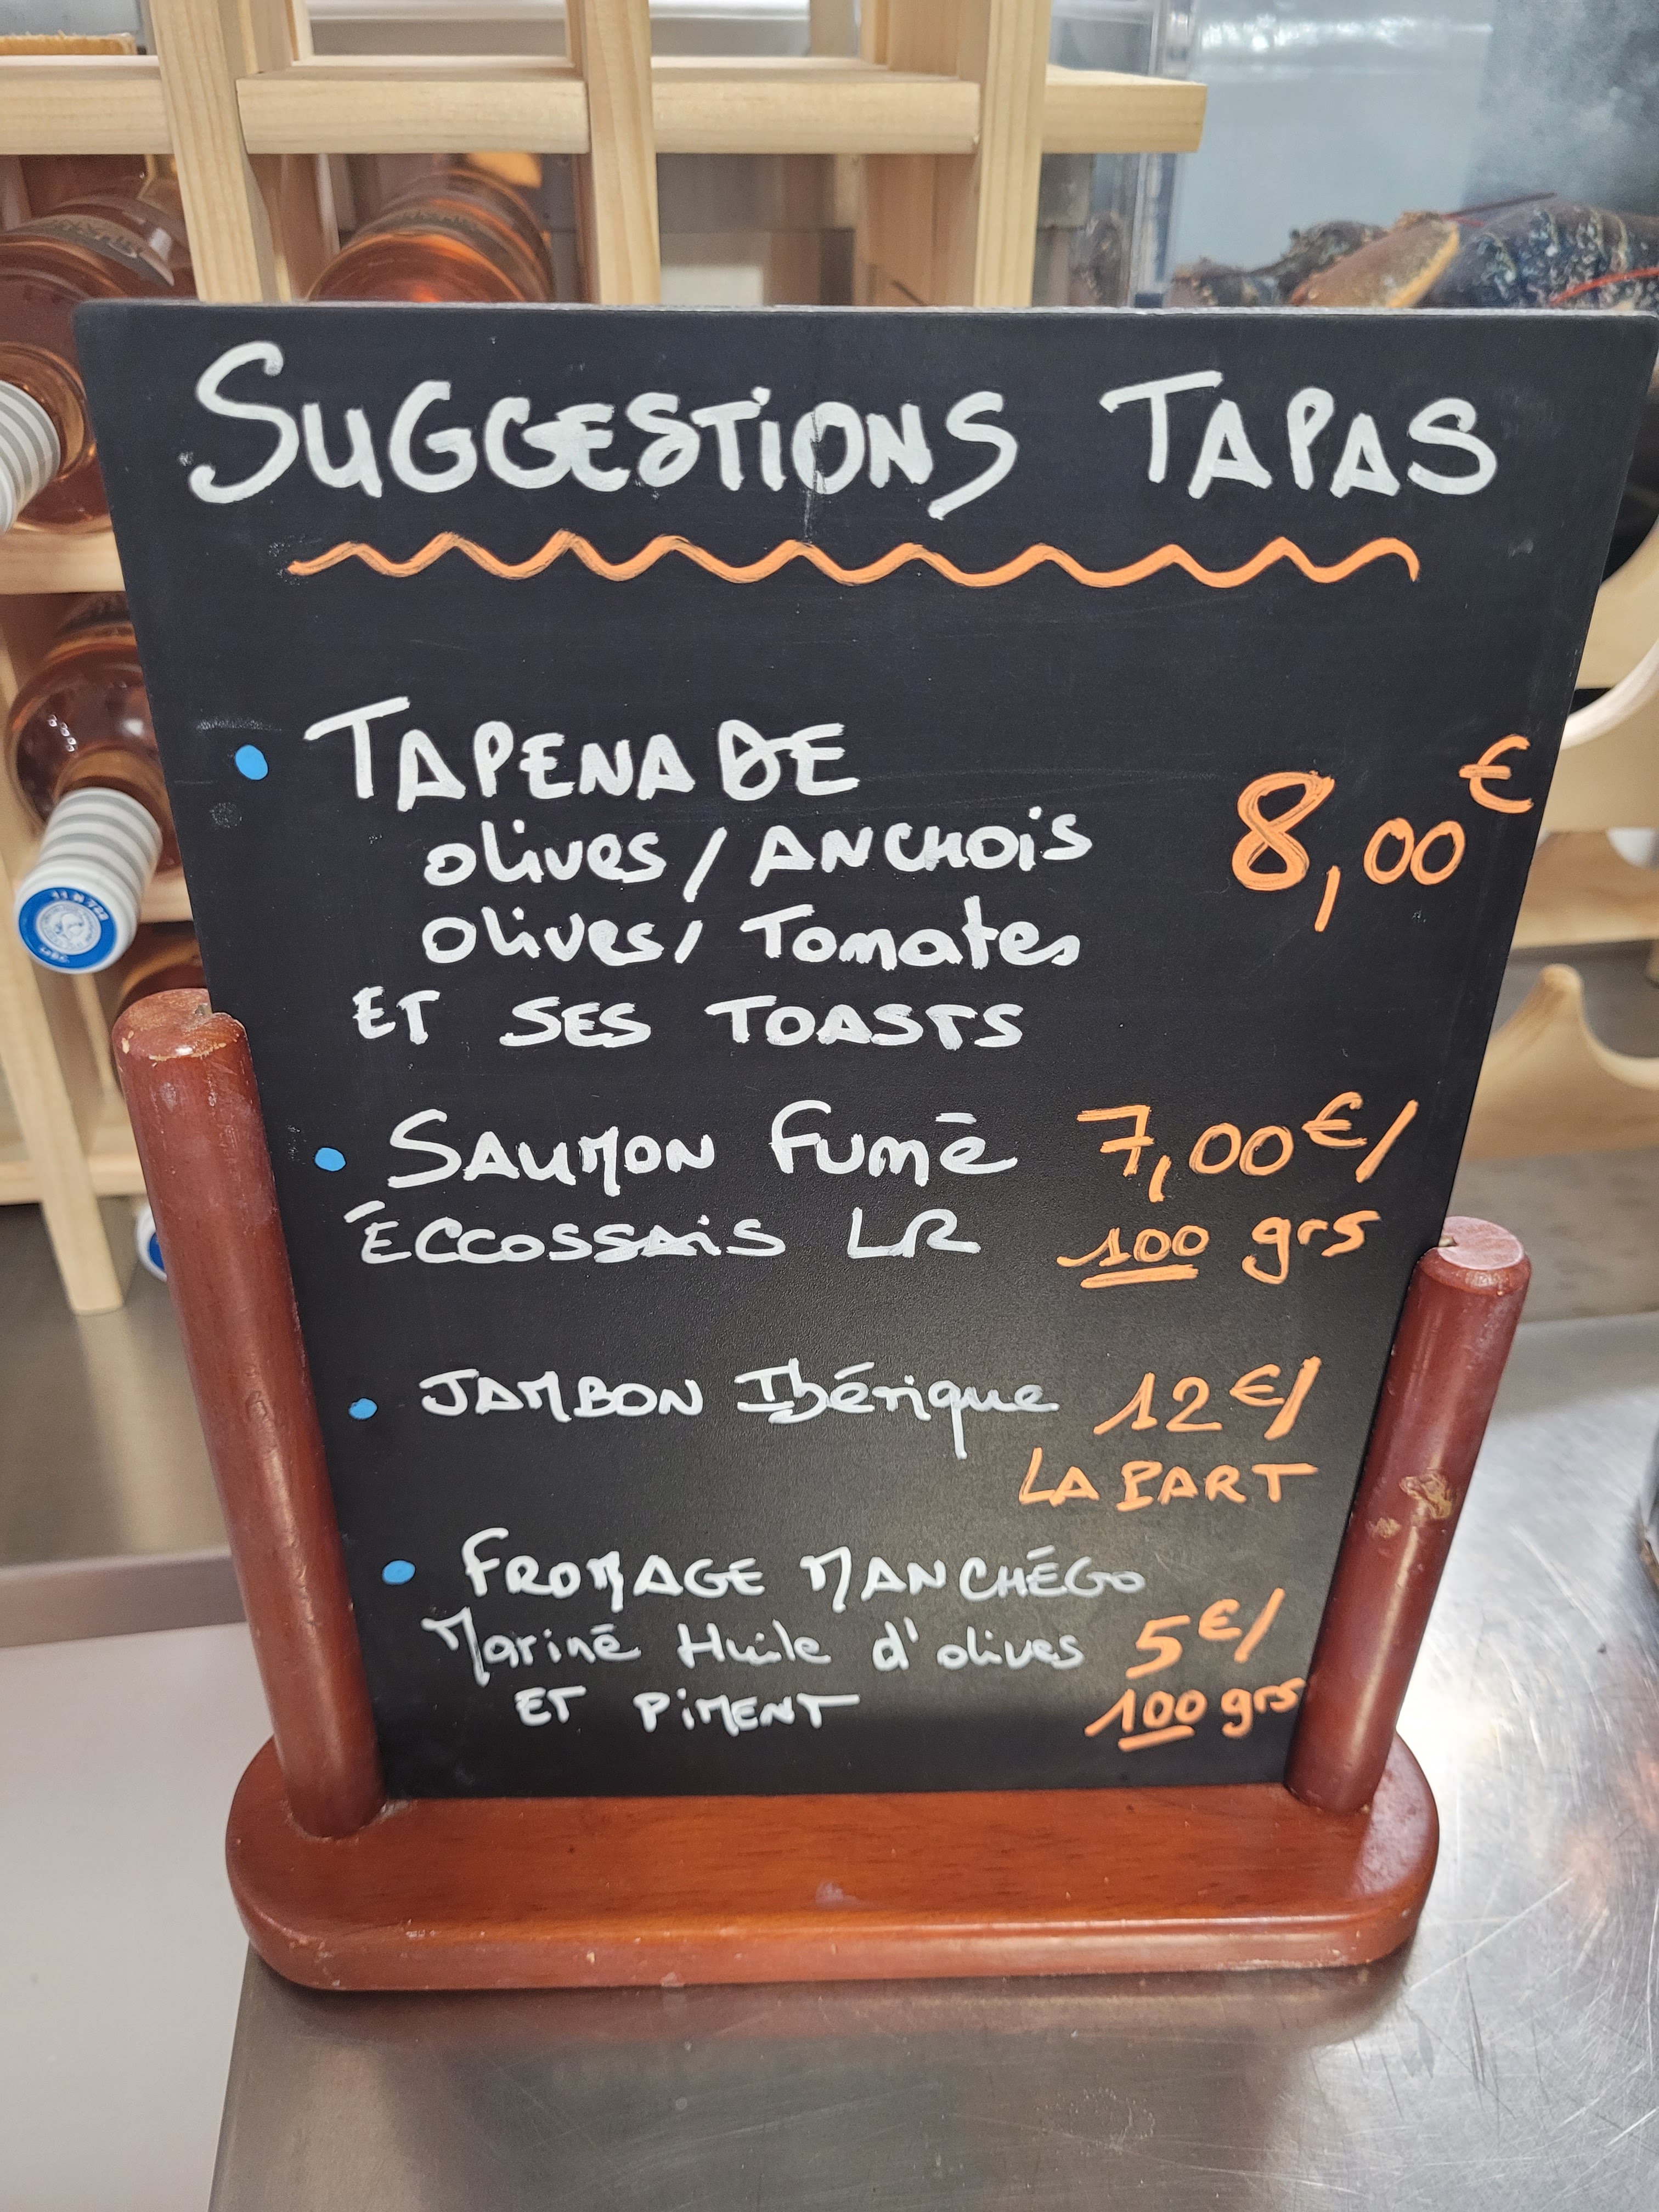 SUGGESTIONS TAPAS
TAPENADE
olives / ANCHOIS 8,00€
olives / Tomates
ET SES TOASTS
SAUMON FUMÉ 7,00€/
ÉCCOSSAIS LR 100 grs
JAMBON Ibérique 12€/
LA PART
FROMAGE MANCHÉGO
Mariné Huile d'olives 5€/
ET PIMENT 100 grs